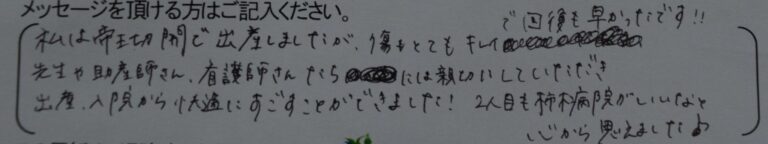 メッセージを頂ける方はご記入ください。
私は帝王切開で出産しましたが、傷もとてもキレイ
で回復も早かったです!!
先生や助産師さん、看護師さんたちには親切にしていただき
出産、入院から快適にすごすことができました! 2人目も柿木病院がいいなと
心から思えました♪